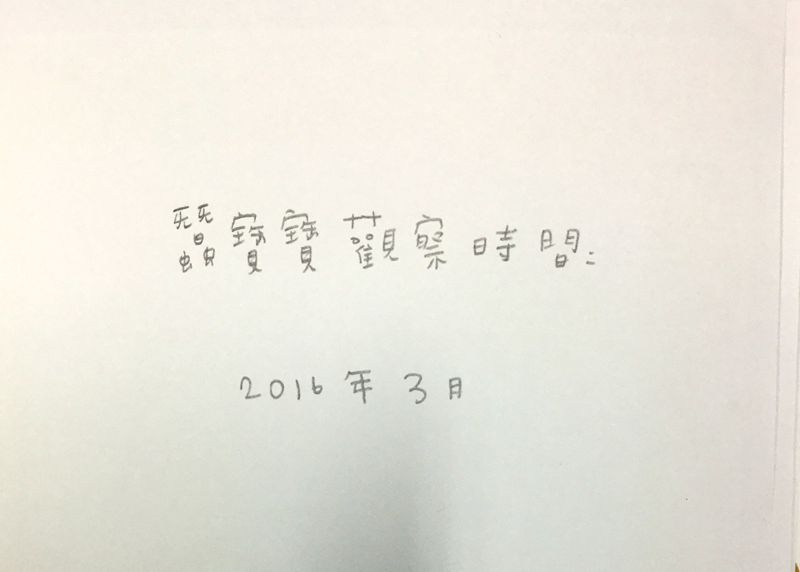 蠶寶寶觀察時間:
2016年3月